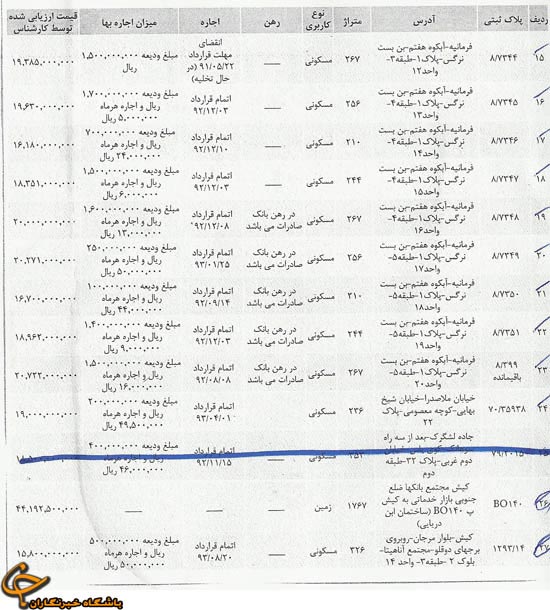 ردیف پلاک ثبتی آدرس متراژ نوع کاربری رهن اجاره میزان اجاره بها قیمت ارزیابی شده توسط کارشناس
۱۵ ۸/۷۳۴۴ فرمانیه-آبکوه هفتم-بن بست نرگس-پلاک۱-طبقه۳-واحد۱۲ ۲۶۷ مسکونی ___ انقضای مهلت قرارداد ۹۱/۰۵/۲۲ (در حال تخلیه) مبلغ ودیعه ۱,۵۰۰,۰۰۰,۰۰۰ ریال ۱۹,۳۸۵,۰۰۰,۰۰۰
۱۶ ۸/۷۳۴۵ فرمانیه-آبکوه هفتم-بن بست نرگس-پلاک۱-طبقه۴-واحد۱۳ ۲۵۶ مسکونی ___ اتمام قرارداد ۹۲/۱۲/۰۳ مبلغ ودیعه ۱,۷۰۰,۰۰۰,۰۰۰ ریال و اجاره هرماه ۵,۰۰۰,۰۰۰ ریال ۱۹,۶۳۰,۰۰۰,۰۰۰
۱۷ ۸/۷۳۴۶ فرمانیه-آبکوه هفتم-بن بست نرگس-پلاک۱-طبقه۴-واحد۱۴ ۲۱۰ مسکونی ___ اتمام قرارداد ۹۲/۱۲/۱۰ مبلغ ودیعه ۷۰۰,۰۰۰,۰۰۰ ریال و اجاره هرماه ۲۴,۰۰۰,۰۰۰ ریال ۱۶,۱۸۰,۰۰۰,۰۰۰
۱۸ ۸/۷۳۴۷ فرمانیه-آبکوه هفتم-بن بست نرگس-پلاک۱-طبقه۴-واحد۱۵ ۲۴۴ مسکونی ___ اتمام قرارداد ۹۲/۱۲/۰۳ مبلغ ودیعه ۱,۵۰۰,۰۰۰,۰۰۰ ریال و اجاره هرماه ۶,۰۰۰,۰۰۰ ریال ۱۸,۳۵۱,۰۰۰,۰۰۰
۱۹ ۸/۷۳۴۸ فرمانیه-آبکوه هفتم-بن بست نرگس-پلاک۱-طبقه۴-واحد۱۶ ۲۶۷ مسکونی در رهن بانک صادرات می باشد اتمام قرارداد ۹۲/۱۲/۰۸ مبلغ ودیعه ۱,۶۰۰,۰۰۰,۰۰۰ ریال و اجاره هرماه ۱۳,۰۰۰,۰۰۰ ریال ۲۰,۰۰۰,۰۰۰,۰۰۰
۲۰ ۸/۷۳۴۹ فرمانیه-آبکوه هفتم-بن بست نرگس-پلاک۱-طبقه۵-واحد۱۷ ۲۵۶ مسکونی در رهن بانک صادرات می باشد اتمام قرارداد ۹۳/۰۱/۲۵ مبلغ ودیعه ۲۵۰,۰۰۰,۰۰۰ ریال و اجاره هرماه ۵۰,۰۰۰,۰۰۰ ریال ۲۰,۲۷۱,۰۰۰,۰۰۰
۲۱ ۸/۷۳۵۰ فرمانیه-آبکوه هفتم-بن بست نرگس-پلاک۱-طبقه۵-واحد۱۸ ۲۱۰ مسکونی در رهن بانک صادرات می باشد اتمام قرارداد ۹۲/۰۹/۱۴ مبلغ ودیعه ۱۰۰,۰۰۰,۰۰۰ ریال و اجاره هرماه ۴۴,۰۰۰,۰۰۰ ریال ۱۶,۷۰۰,۰۰۰,۰۰۰
۲۲ ۸/۷۳۵۱ فرمانیه-آبکوه هفتم-بن بست نرگس-پلاک۱-طبقه۵-واحد۱۹ ۲۴۴ مسکونی در رهن بانک صادرات می باشد اتمام قرارداد ۹۲/۱۲/۰۳ مبلغ ودیعه ۱,۴۰۰,۰۰۰,۰۰۰ ریال و اجاره هرماه ۹,۰۰۰,۰۰۰ ریال ۱۸,۹۶۲,۰۰۰,۰۰۰
۲۳ ۸/۳۹۹ باقیمانده فرمانیه-آبکوه هفتم-بن بست نرگس-پلاک۱-طبقه۵-واحد۲۰ ۲۶۷ مسکونی در رهن بانک صادرات می باشد اتمام قرارداد ۹۲/۰۸/۰۸ مبلغ ودیعه ۱,۵۰۰,۰۰۰,۰۰۰ ریال و اجاره هرماه ۱۶,۰۰۰,۰۰۰ ریال ۲۰,۷۲۲,۰۰۰,۰۰۰
۲۴ ۷۰/۳۵۹۳۸ خیابان ملاصدرا-خیابان شیخ بهایی-کوچه معصومی-پلاک ۲۲ ۲۳۶ مسکونی ___ اتمام قرارداد ۹۳/۰۴/۰۱ مبلغ ودیعه ۲۰۰,۰۰۰,۰۰۰ ریال و اجاره هرماه ۴۹,۵۰۰,۰۰۰ ریال ۱۹,۰۰۰,۰۰۰,۰۰۰
جاده لشگرک-بعد از سه راه دوم غربی-پلاک ۳۲-طبقه دوم مسکونی ___ اتمام قرارداد ۹۲/۱۱/۱۵ مبلغ ودیعه ۴۰۰,۰۰۰,۰۰۰ ریال و اجاره هرماه ۴۶,۰۰۰,۰۰۰ ریال
۲۶ BO۱۴۰ کیش مجتمع بانکها ضلع جنوبی بازار خدماتی به کیش پ BO۱۴۰ (ساختمان ابن دریایی) ۱۷۶۷ زمین ___ ___ ___ ۴۴,۱۹۲,۵۰۰,۰۰۰
۲۷ ۱۲۹۳/۱۴ کیش-بلوار مرجان-روبروی برجهای دوقلو-مجتمع آناهیتا-بلوک ۲ -طبقه۳- واحد ۱۴ ۳۲۶ مسکونی ___ اتمام قرارداد ۹۳/۰۸/۲۰ مبلغ ودیعه ۵۰۰,۰۰۰,۰۰۰ ریال و اجاره هرماه ۵۰,۰۰۰,۰۰۰ ریال ۱۵,۸۰۰,۰۰۰,۰۰۰
باشگاه خبرنگاران